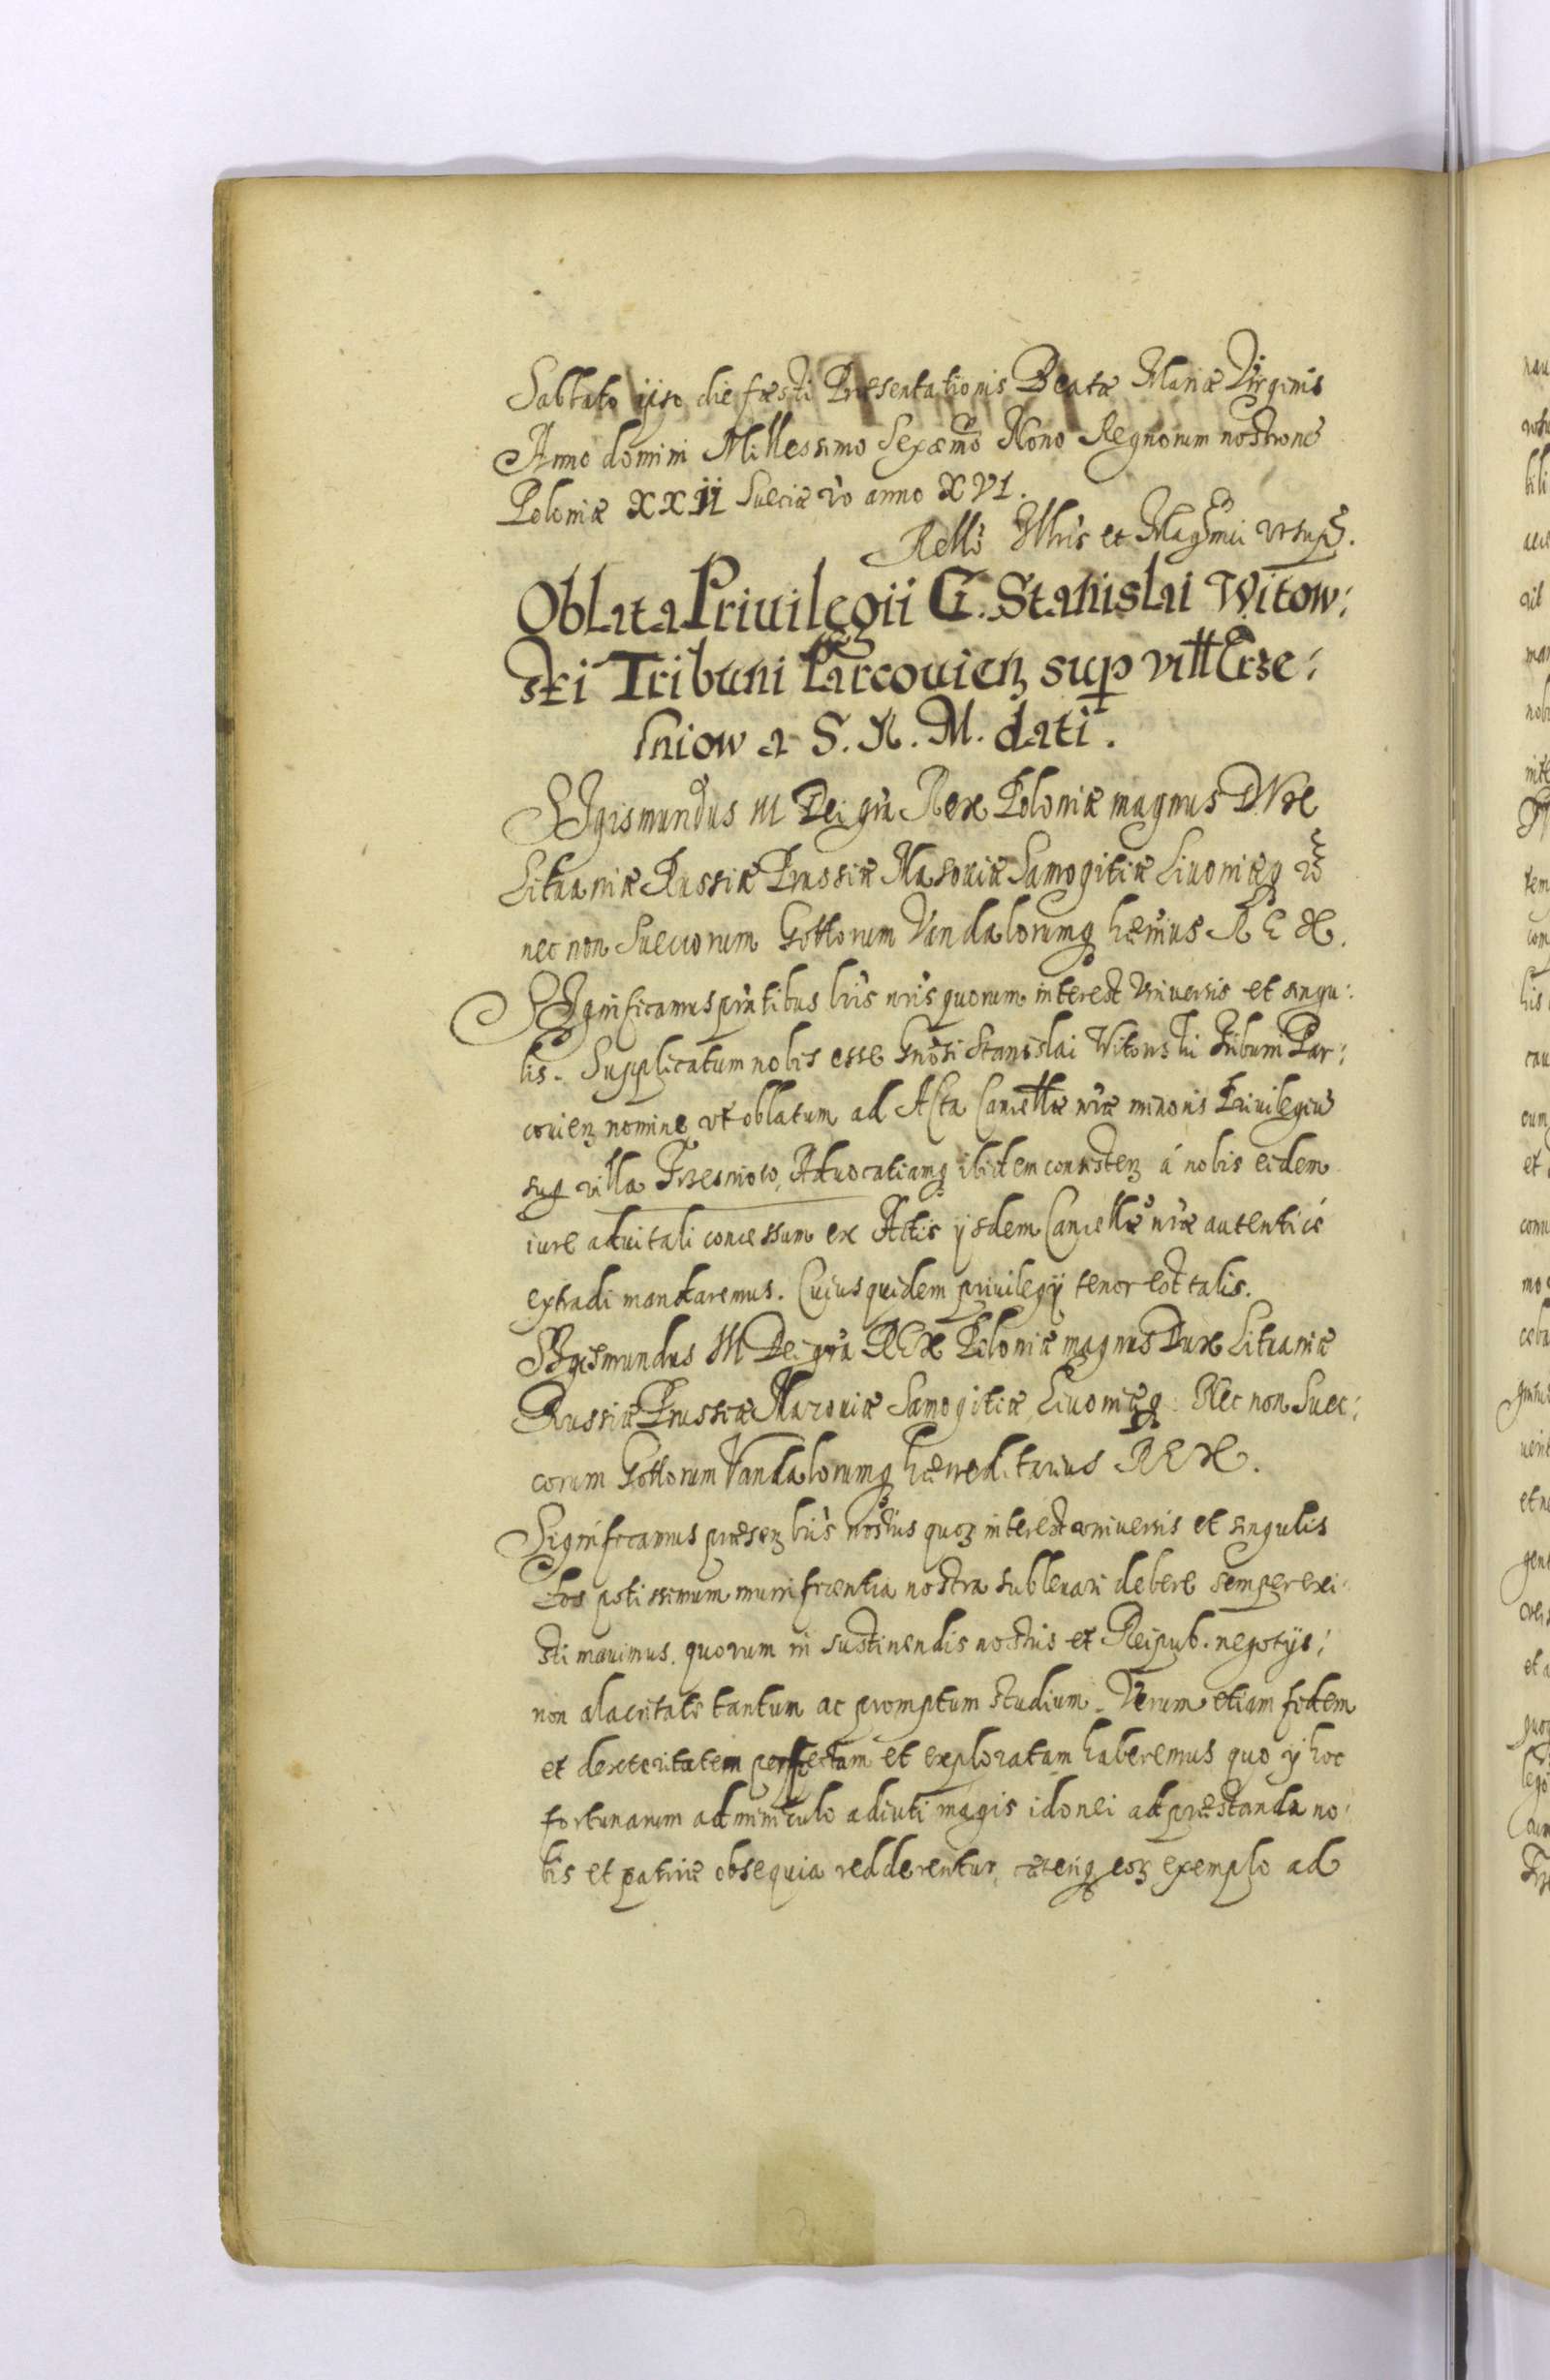 Sabbato ipso die fæsti Præsentationis Beatæ Mariæ Virginis
Anno domini Millessimo Sexcẽmo Nono Regnorum nostrorũ
Poloniæ XXII Sueciæ vo anno XVI.
Rello Illris et Magmci ut sup.
Oblata Priuilegii G. Stanislai Witow:
ski Tribuni Parcouienȝ sup vill Trze:
sniow a S. R. M. dati.
SIgismundus III Dei gra Rex Poloniæ magnus DVx
Lituaniæ Russiæ Prussiæ Masouiæ Samogitiæ Liuoniæq
nec non Suecorum Gottorum Vandalorumq hæríus REX.
SIgnificamus pntibus lris nris quorum interest Vniuersis et singu:
lis. Supplicatum nobis esse Gnosi Stanislai Witowski Tribuni Par:
couienȝ nomine vt oblatum ad Acta Cancellæ nræ minoris Priuilegiũ
sup villa Trzesniow, Aduocatiamq ibidem consistenȝ á nobis eidem
iure aduitali concessum ex Actis ijsdem Cancellæ nræ autenticé
extradi mandaremus. Cuius quidem priuilegij tenor est talis.
SIgismundus III Dei gra REx Poloniæ magnus Dux Lituaniæ
Russiæ Prussiæ Mazouiæ Samogitiæ, Liuoniæq. Nec non Suec:
corum Gottorum Vandalorumq hæreditarius REX.
Significamus præsenȝ lris nostris quoȝ interest vniuersis et singulis
Eos potissimum munificentia nostra subleuari debere semper exi:
stimauimus, quorum in sustinendis nostris et Reipub. negotijs:
non alacritatẽ tantum ac promptum studium. Verum etiam fidem
et dexteritatem perfectam et exploratam haberemus quo ij hoc
fortunarum adminiculo adiuti magis idonei ad præstanda no:
bis et patriæ obsequia redderentur, cæteriq eoȝ exemplo ad